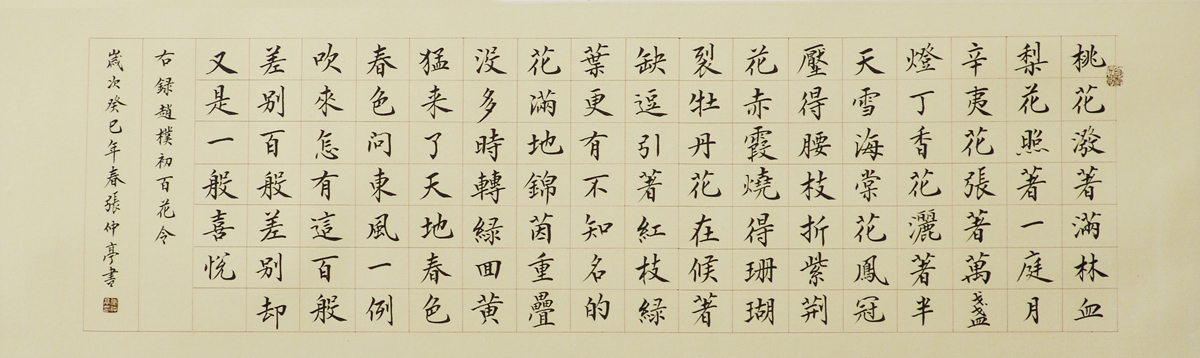 桃花潑著滿林血
梨花照著一庭月
辛夷花張著萬盞
燈丁香花灑著半
天雪海棠花鳳冠
壓得腰枝折紫荆
花赤霞燒得珊瑚
裂牡丹花在候著
缺逗引著紅枝綠
葉更有不知名的
花滿地錦茵重疊
没多時轉綠回黄
猛来了天地春色
春色問東風一例
吹來怎有這百般
差别百般差别却
又是一般喜悅
右録趙樸初百花令
嵗次癸巳年春張仲亭書